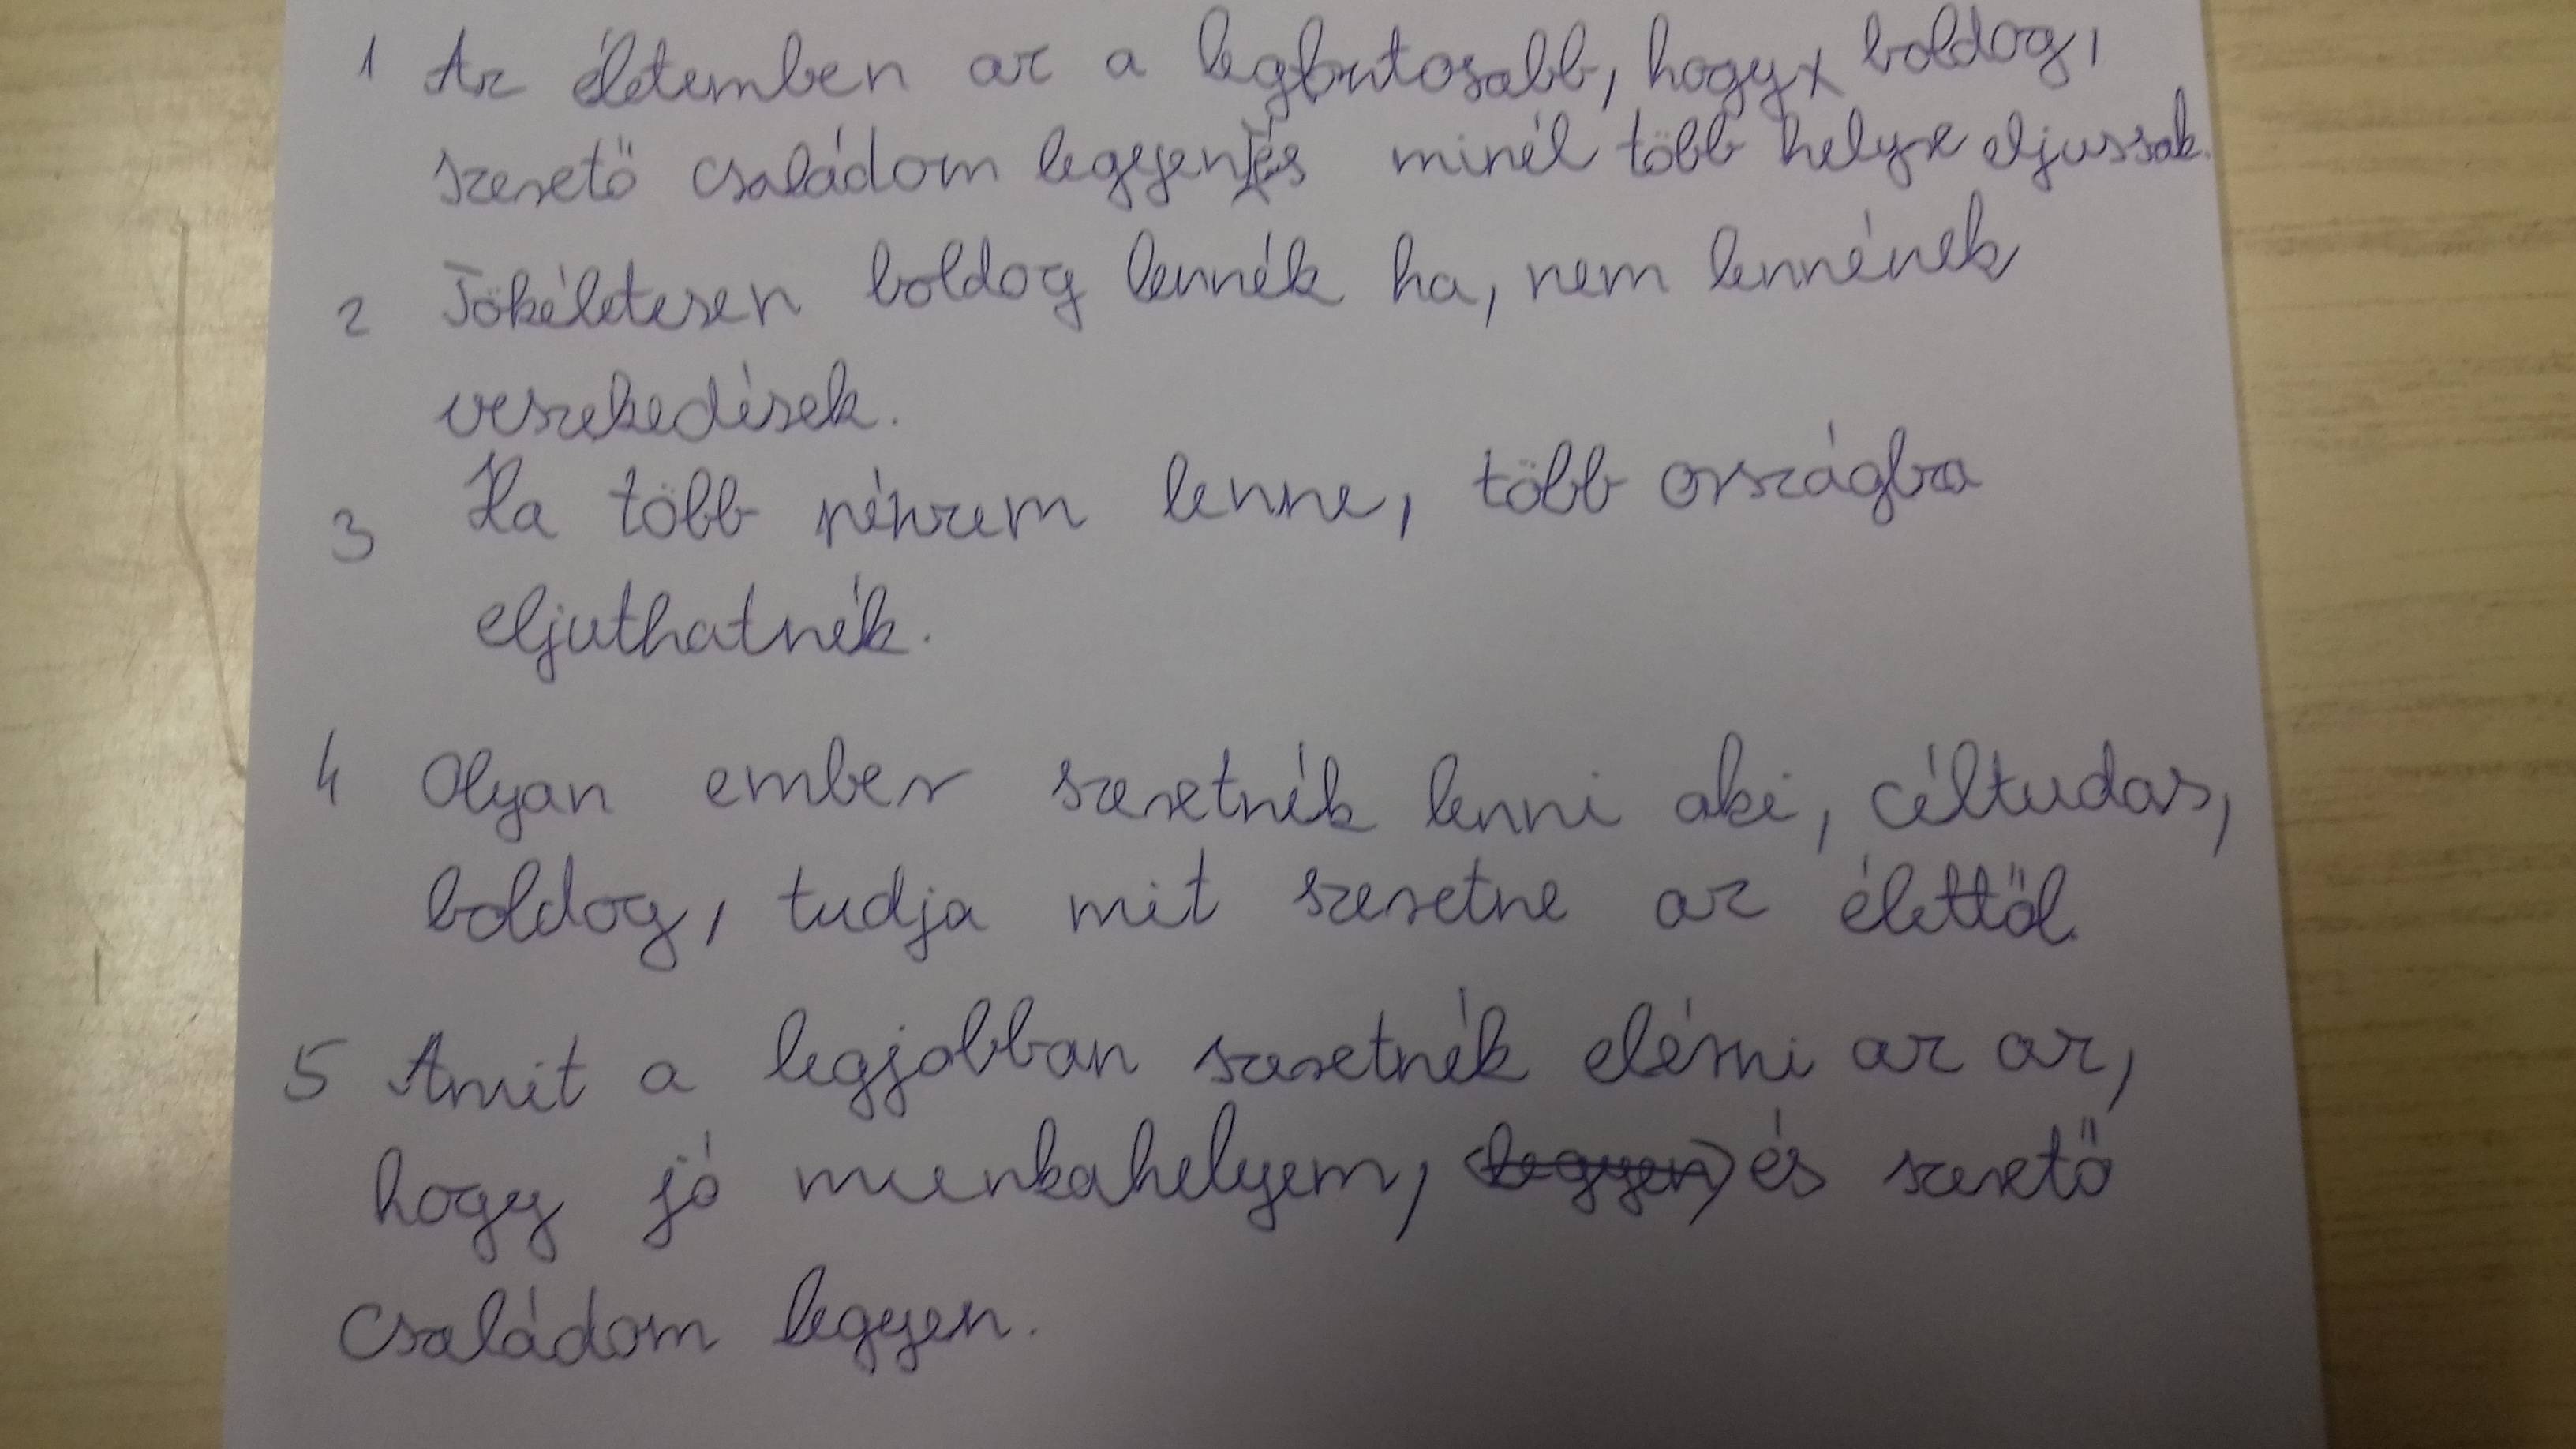 1 Az életemben az a legfontosabb, hogy boldog,
szerető családom legyen és minél több helyre eljussak.
2 Tökéletesen boldog lennék ha, nem lennének
veszekedések.
3 Ha több pénzem lenne, több országba
eljuthatnék.
4 Olyan ember szeretnék lenni aki, céltudas,
boldog, tudja mit szeretne az élettől.
5 Amit a legjobban szeretnék elérni az az,
hogy jó munkahelyem, (legyen) és szerető
családom legyen.